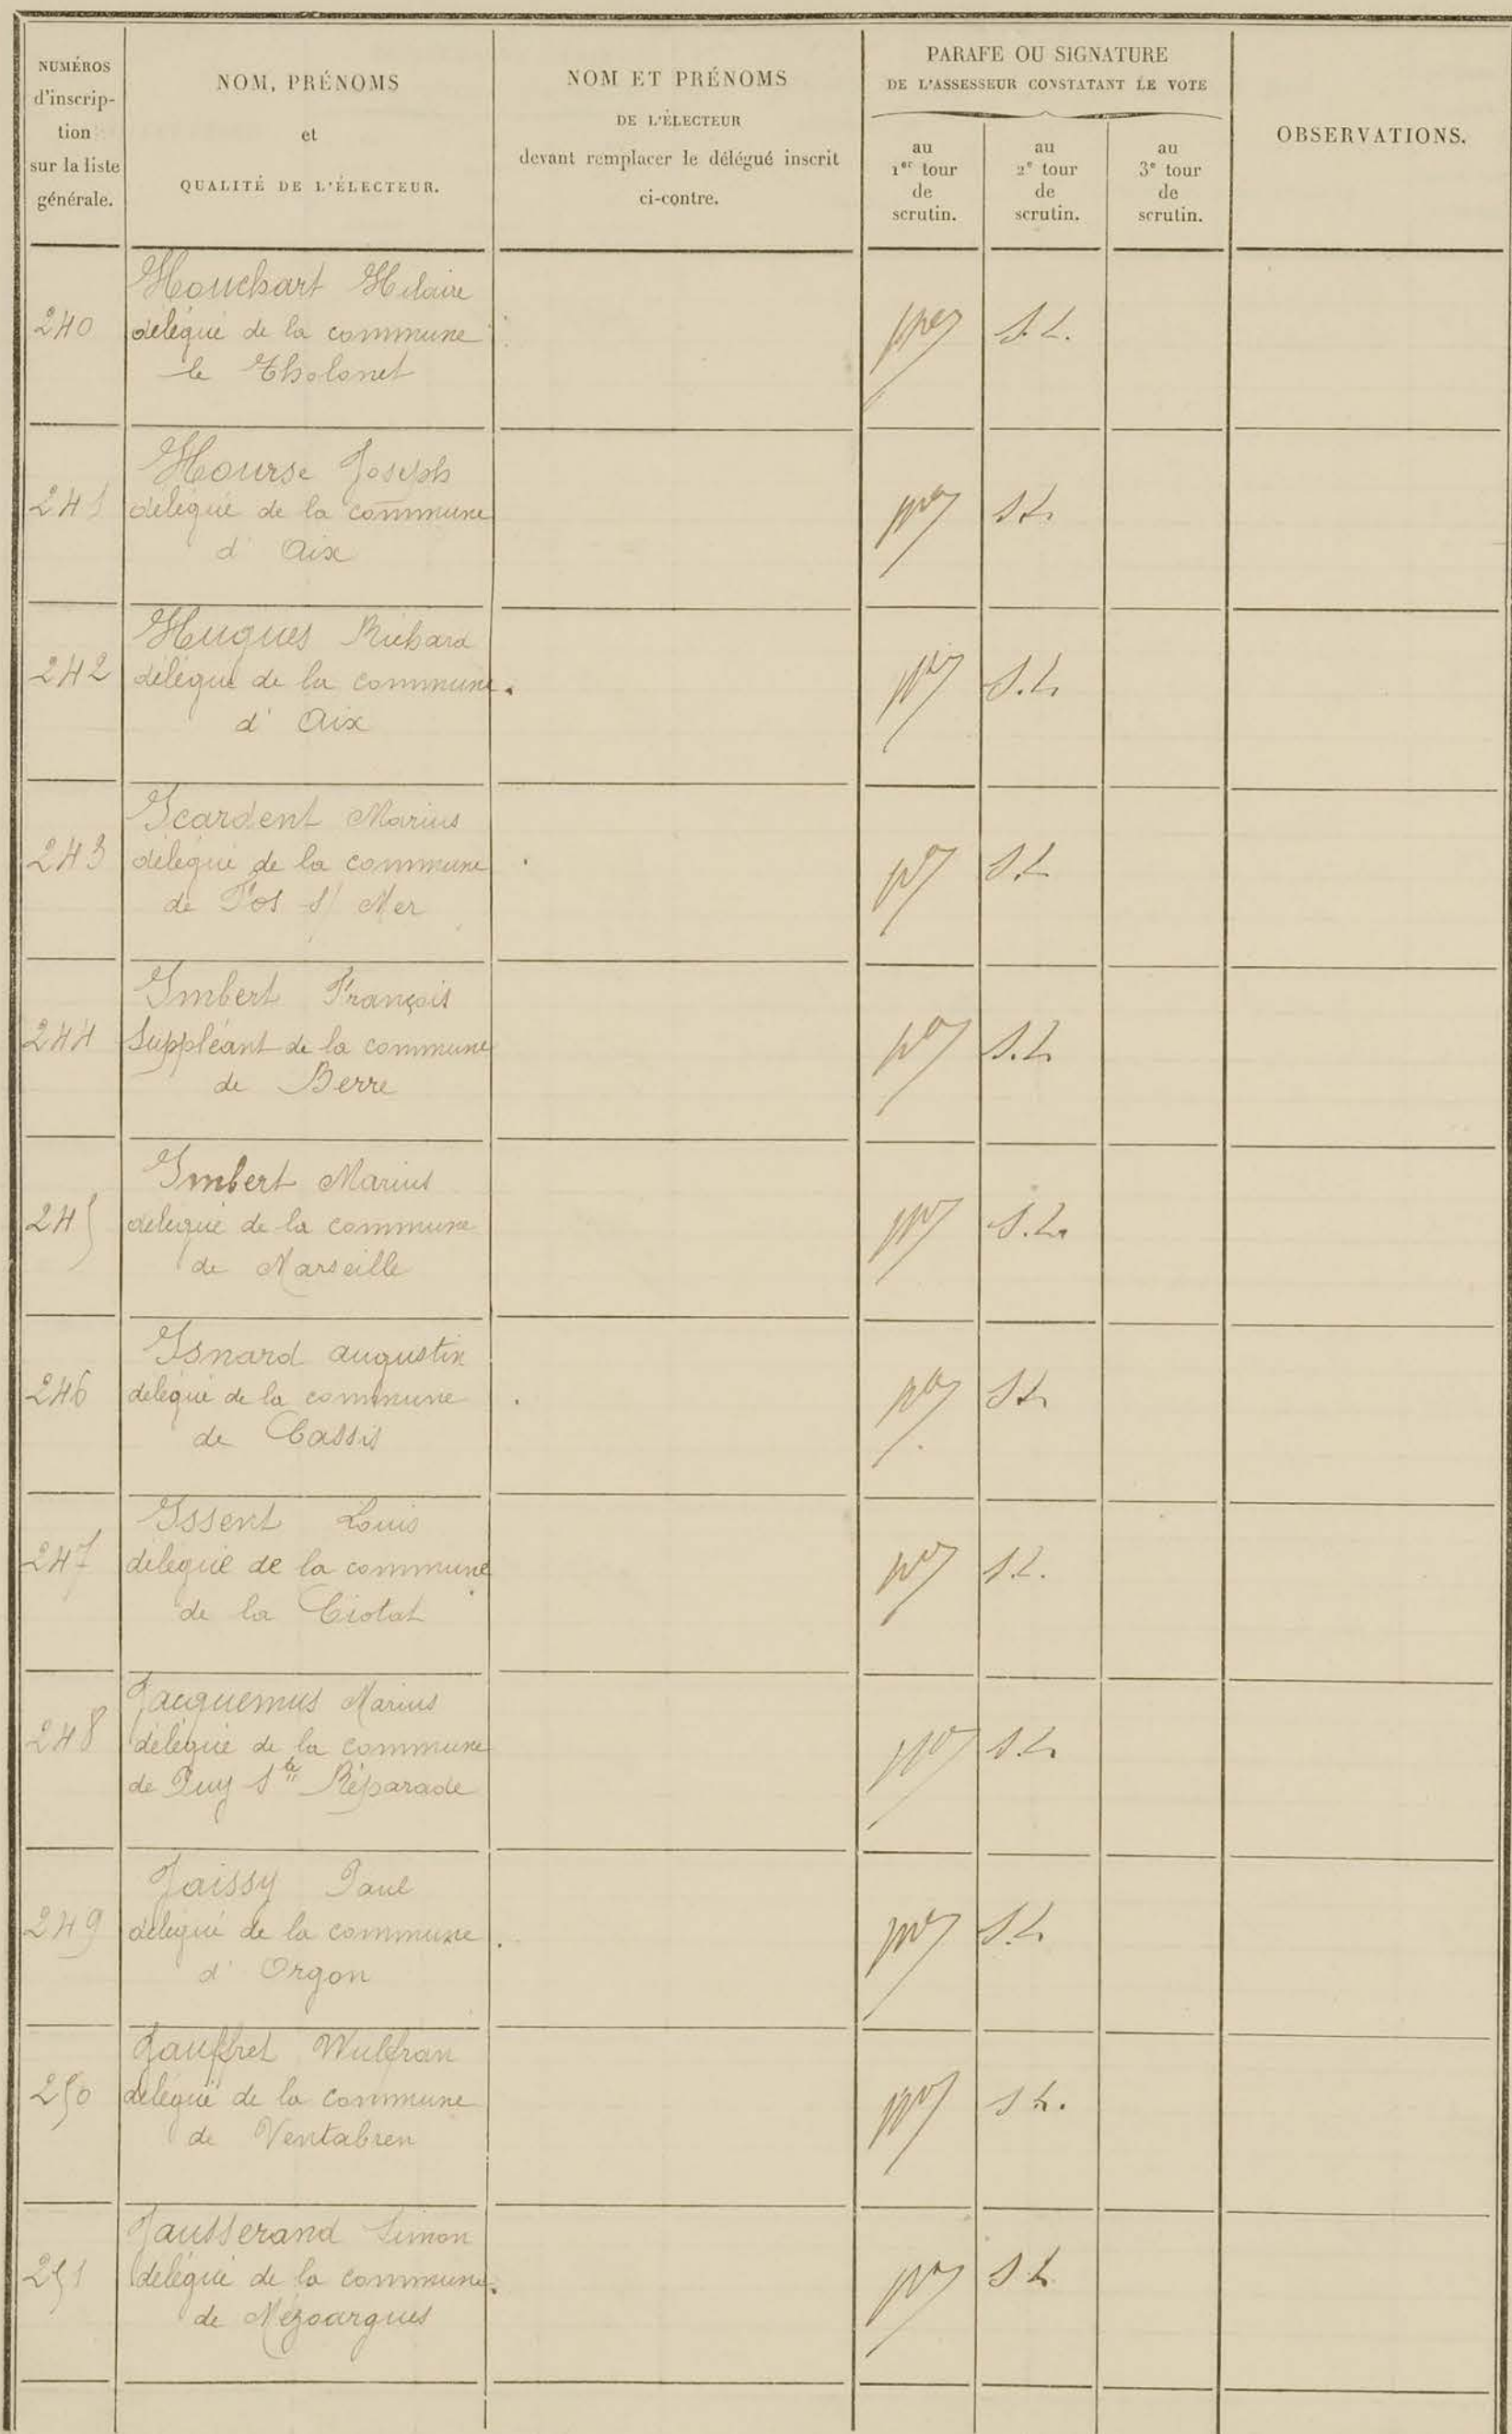 NUMÉROS
d'inscrip-
tion
sur la liste
générale.
NOM, PRÉNOMS
et
QUALITÉ DE L'ÉLECTEUR.
NOM ET PRÉNOMS
DE L'ÉLECTEUR
devant remplacer le délégué inscrit
ci-contre.
PARAFE OU SIGNATURE
DE L'ASSESSEUR CONSTATANT LE VOTE
au
1er tour
de
scrutin.
au
2e tour
de
scrutin.
au
3e tour
de
scrutin.
OBSERVATIONS.
Houchart Hilaire
240 délégué de la commune S.L.
le Tholonet
Hourse Joseph
241 délégué de la commune S.L.
d'Aix
Hugues Richard
242 délégué de la commune S.L.
d'Aix
Icardent Marius
243 délégué de la commune S.L.
de Fos s/ Mer
Imbert François
244 Suppléant de la commune S.L.
de Berre
Imbert Marius
245 délégué de la commune S.L.
de Marseille
Isnard augustin
246 délégué de la commune S.L.
de Cassis
Issent Louis
247 délégué de la commune S.L.
de la Ciotat
Jacquemus Marius
248 délégué de la commune S.L.
de Puy Ste Réparade
Jaissy Paul
249 délégué de la commune S.L.
d'Orgon
Jauffret Wulfran
250 délégué de la commune S.L.
de Ventabren
Jausserand Simon
251 délégué de la commune S.L.
de Mézoargues